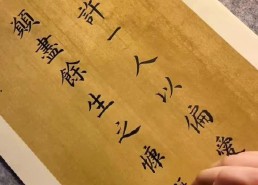 許一人以偏愛
願盡餘生之慷